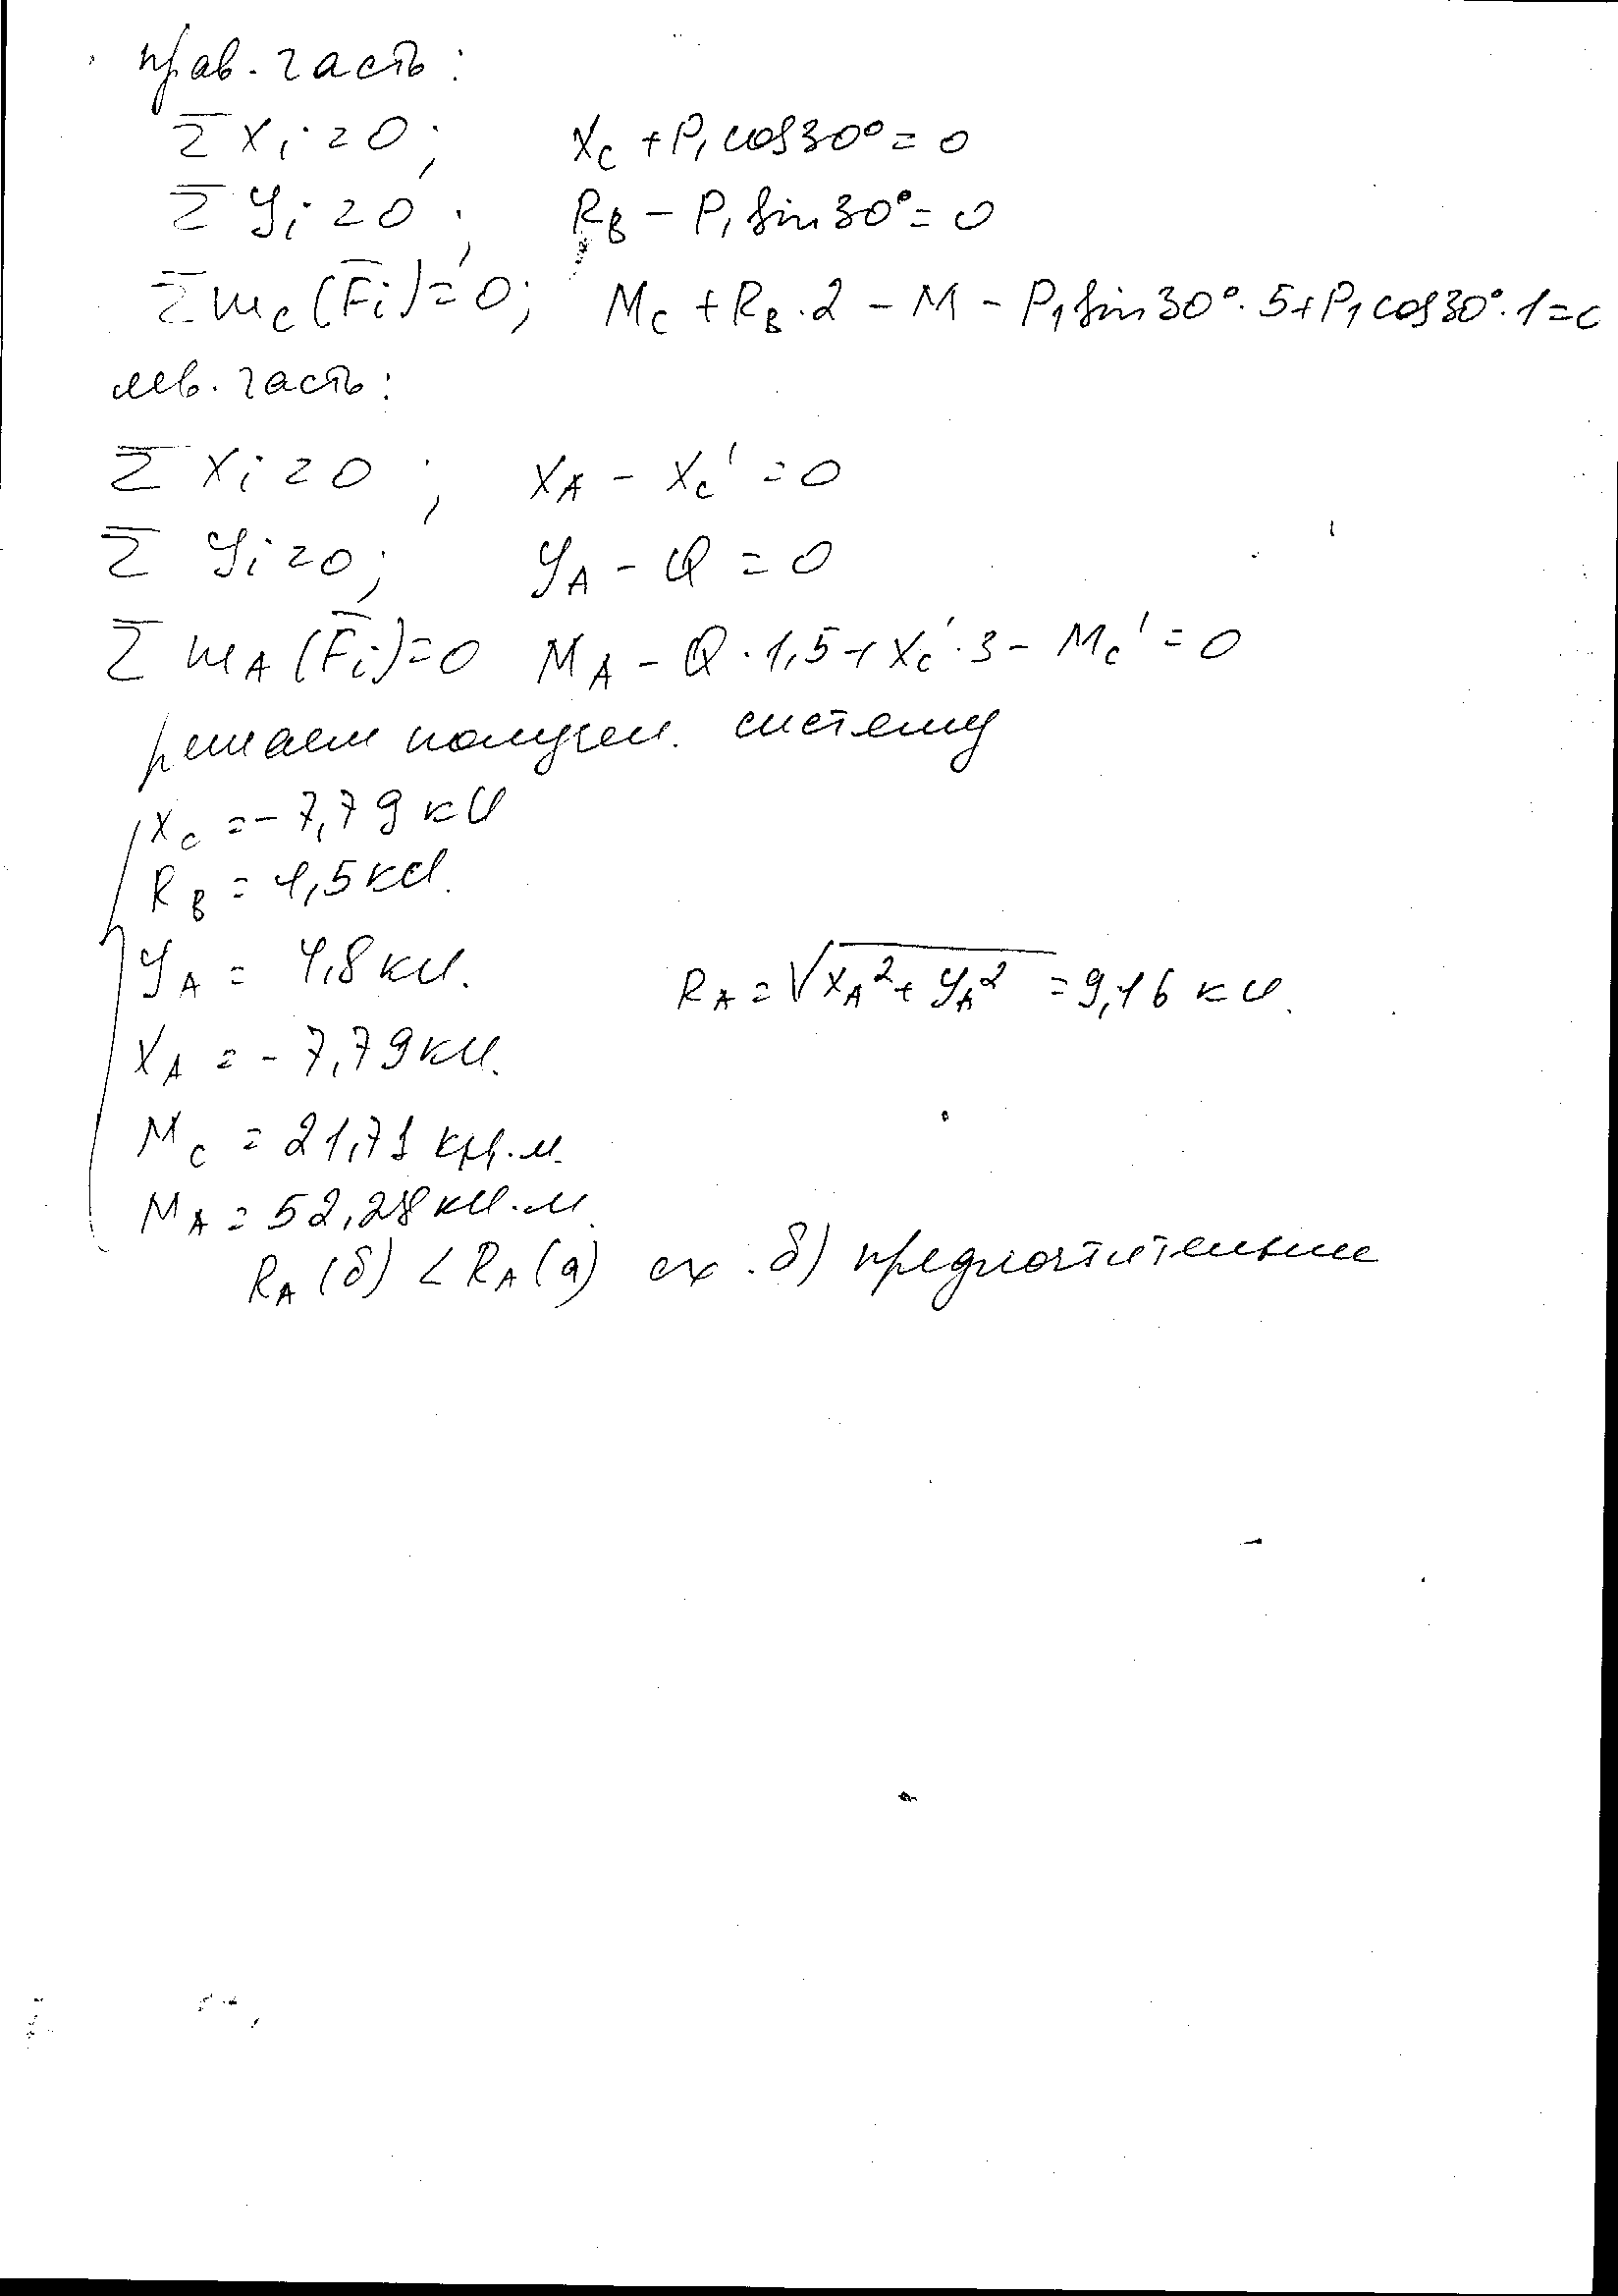 прав. часть:
Σ Xi = 0; Xc + P₁ cos30° = 0
Σ Yi = 0; RB − P₁ sin30° = 0
Σ mc(F̄i) = 0; Mc + RB·2 − M − P₁ sin30°·5 + P₁ cos30°·1 = 0
лев. часть:
Σ Xi = 0; XA − Xc' = 0
Σ Yi = 0; YA − Q = 0
Σ mA(F̄i) = 0 MA − Q·1,5 + Xc'·3 − Mc' = 0
решаем получен. систему
Xc = −7,79 кН
RB = 4,5 кН.
YA = 4,8 кН. RA = √XA² + YA² = 9,16 кН.
XA = −7,79 кН.
Mc = 21,71 кН.м.
MA = 52,28 кН.м.
RA(б) < RA(а) сх. б) предпочтительнее